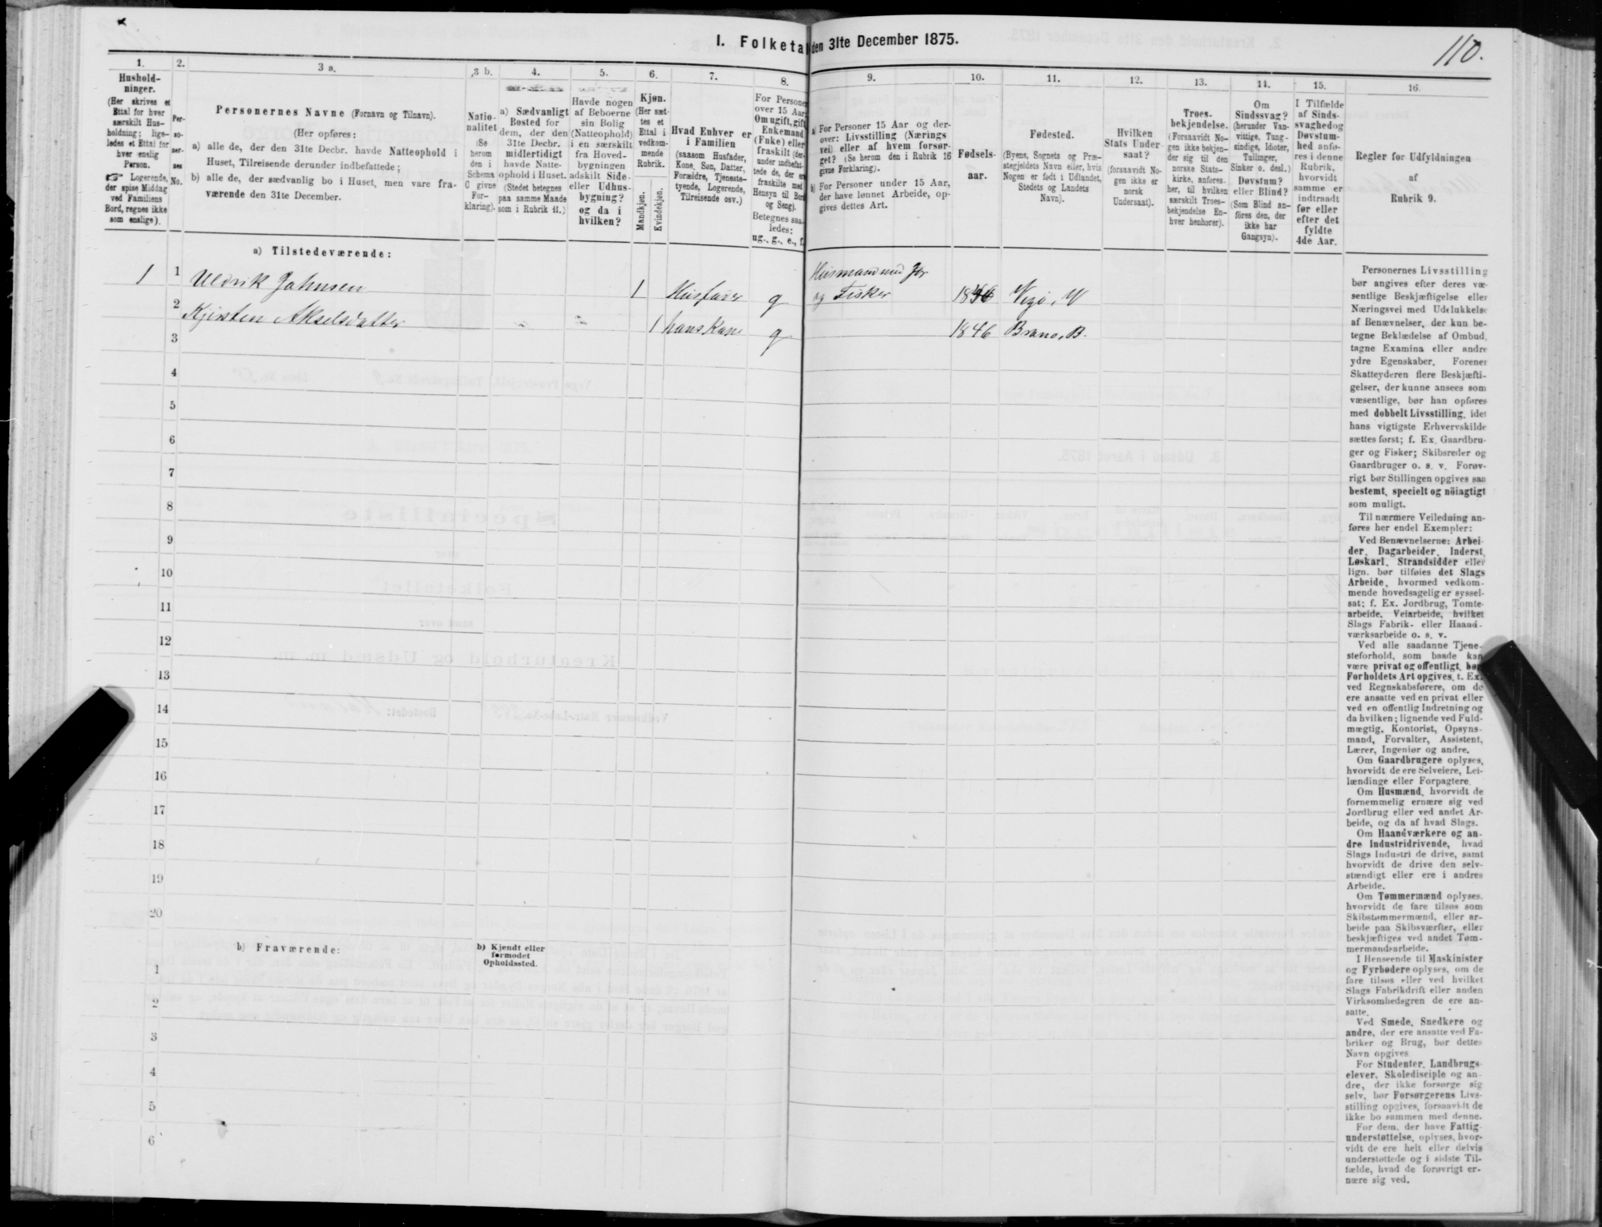 110.
I. Folketal den 31te December 1875.
1.
Hushold-
ninger.
(Her skrives et
Ettal for hver
særskilt Hus-
holdning; lige-
ledes et Ettal for
hver enslig
Person.
☞ Logerende,
der spise Middag
ved Familiens
Bord, regnes ikke
som enslige).
2.
Per-
so-
ner-
nes
No.
3 a.
Personernes Navne (Fornavn og Tilnavn).
(Her opføres:
a) alle de, der den 31te Decbr. havde Natteophold i
Huset, Tilreisende derunder indbefattede;
b) alle de, der sædvanlig bo i Huset, men vare fra-
værende den 31te December.
3 b.
Natio-
nalitet
(Se
herom
den i
Schema
C givne
For-
klaring).
4.
a) Sædvanligt
Bosted for
dem, der den
31te Decbr.
midlertidigt
havde Natte-
ophold i Huset.
(Stedet betegnes
paa samme Maade
som i Rubrik 11.)
5.
Havde nogen
af Beboerne
sin Bolig
(Natteophold)
i en særskilt
fra Hoved-
bygningen
adskilt Side-
eller Udhus-
bygning?
og da i
hvilken?
6.
Kjøn.
(Her sæt-
tes et
Ettal i
vedkom-
mende
Rubrik.
Mandkjøn.
Kvindekjøn.
7.
Hvad Enhver er
i Familien
(saasom Husfader,
Kone, Søn, Datter,
Forældre, Tjeneste-
tyende, Logerende,
Tilreisende osv.)
8.
For Personer
over 15 Aar:
Om ugift, gift,
Enkemand
(Enke) eller
fraskilt (der-
under indbefat-
tede de, der ere
fraskilte med
Hensyn til Bord
og Seng).
Betegnes saa-
ledes:
ug., g., e., f.
9.
a) For Personer 15 Aar og der-
over: Livsstilling (Nærings-
vei) eller af hvem forsør-
get? (Se herom den i Rubrik 16
givne Forklaring).
b) For Personer under 15 Aar,
der have lønnet Arbeide, op-
gives dettes Art.
10.
Fødsels-
aar.
11.
Fødested.
(Byens, Sognets og Præ-
stegjeldets Navn eller, hvis
Nogen er født i Udlandet,
Stedets og Landets
Navn).
12.
Hvilken
Stats Under-
saat?
(forsaavidt No-
gen ikke er
norsk
Undersaat).
13.
Troes-
bekjendelse.
(Forsaavidt No-
gen ikke bekjen-
der sig til den
norske Stats-
kirke, anføres
her, til hvilken
særskilt Troes-
bekjendelse En-
hver henhører).
14.
Om
Sindssvag?
(herunder Van-
vittige, Tung-
sindige, Idioter,
Tullinger,
Sinker o. desl.)
Døvstum?
eller Blind?
(Som Blind an-
føres den, der
ikke har
Gangsyn).
15.
I Tilfælde
af Sinds-
svaghed og
Døvstum-
hed anfø-
res i denne
Rubrik,
hvorvidt
samme er
indtraadt
før eller
efter det
fyldte
4de Aar.
16.
Regler for Udfyldningen
af
Rubrik 9.
a) Tilstedeværende:
1 1 Uldrik Johnsen 1 Husfader g Husmand med Jor og Fisker Vegø, V
2 Kjersten Akselsdatter 1 hans Kone g 1846 Brønø, B.
3
4
5
6
7
8
9
10
11
12
13
14
15
16
17
18
19
20
b) Fraværende:
b) Kjendt eller
formodet
Opholdssted.
1
2
3
4
5
6
Personernes Livsstilling
bør angives efter deres væ-
sentlige Beskjæftigelse eller
Næringsvei med Udelukkelse
af Benævnelser, der kun be-
tegne Beklædelse af Ombud,
tagne Examina eller andre
ydre Egenskaber. Forener
Skatteyderen flere Beskjæfti-
gelser, der kunne ansees som
væsentlige, bør han opføres
med dobbelt Livsstilling, idet
hans vigtigste Erhvervskilde
sættes først; f. Ex. Gaardbru-
ger og Fisker; Skibsreder og
Gaardbruger o. s. v. Forøv-
rigt bør Stillingen opgives saa
bestemt, specielt og nöiagtigt
som muligt.
Til nærmere Veiledning an-
føres her endel Exempler:
Ved Benævnelserne: Arbei-
der, Dagarbeider, Inderst,
Løskarl, Strandsidder eller
lign. bør tilføies det Slags
Arbeide, hvormed vedkom-
mende hovedsagelig er syssel-
sat; f. Ex. Jordbrug, Tomte-
arbeide, Veiarbeide, hvilket
Slags Fabrik- eller Haand-
værksarbeide o. s. v.
Ved alle saadanne Tjene-
steforhold, som baade kan
være privat og offentligt, bør
Forholdets Art opgives, t. Ex.
ved Regnskabsførere, om de
ere ansatte ved en privat eller
ved en offentlig Indretning og
da hvilken; lignende ved Fuld-
mægtig, Kontorist, Opsyns-
mand, Forvalter, Assistent,
Lærer, Ingeniør og andre.
Om Gaardbrugere oplyses,
hvorvidt de ere Selveiere, Lei-
lændinge eller Forpagtere.
Om Husmænd, hvorvidt de
fornemmelig ernære sig ved
Jordbrug eller ved andet Ar-
beide, og da af hvad Slags.
Om Haandværkere og an-
dre Industridrivende, hvad
Slags Industri de drive, samt
hvorvidt de drive den selv-
stændigt eller ere i andres
Arbeide.
Om Tømmermænd oplyses,
hvorvidt de fare tilsøs som
Skibstømmermænd, eller ar-
beide paa Skibsværfter, eller
beskjæftiges ved andet Tøm-
mermandsarbeide.
I Henseende til Maskinister
og Fyrbødere oplyses, om de
fare tilsøs eller ved hvilket
Slags Fabrikdrift eller anden
Virksomhedsgren de ere an-
satte.
Ved Smede, Snedkere og
andre, der ere ansatte ved Fa-
briker og Brug, bør dettes
Navn opgives.
For Studenter, Landbrugs-
elever, Skoledisciple og an-
dre, der ikke forsørge sig
selv, bør Forsørgerens Livs-
stilling opgives, forsaavidt de
ikke bo sammen med denne.
For dem, der have Fattig-
understøttelse, oplyses, hvor-
vidt de ere helt eller delvis
understøttede og i sidste Til-
fælde, hvad de forøvrigt er-
nære sig ved.